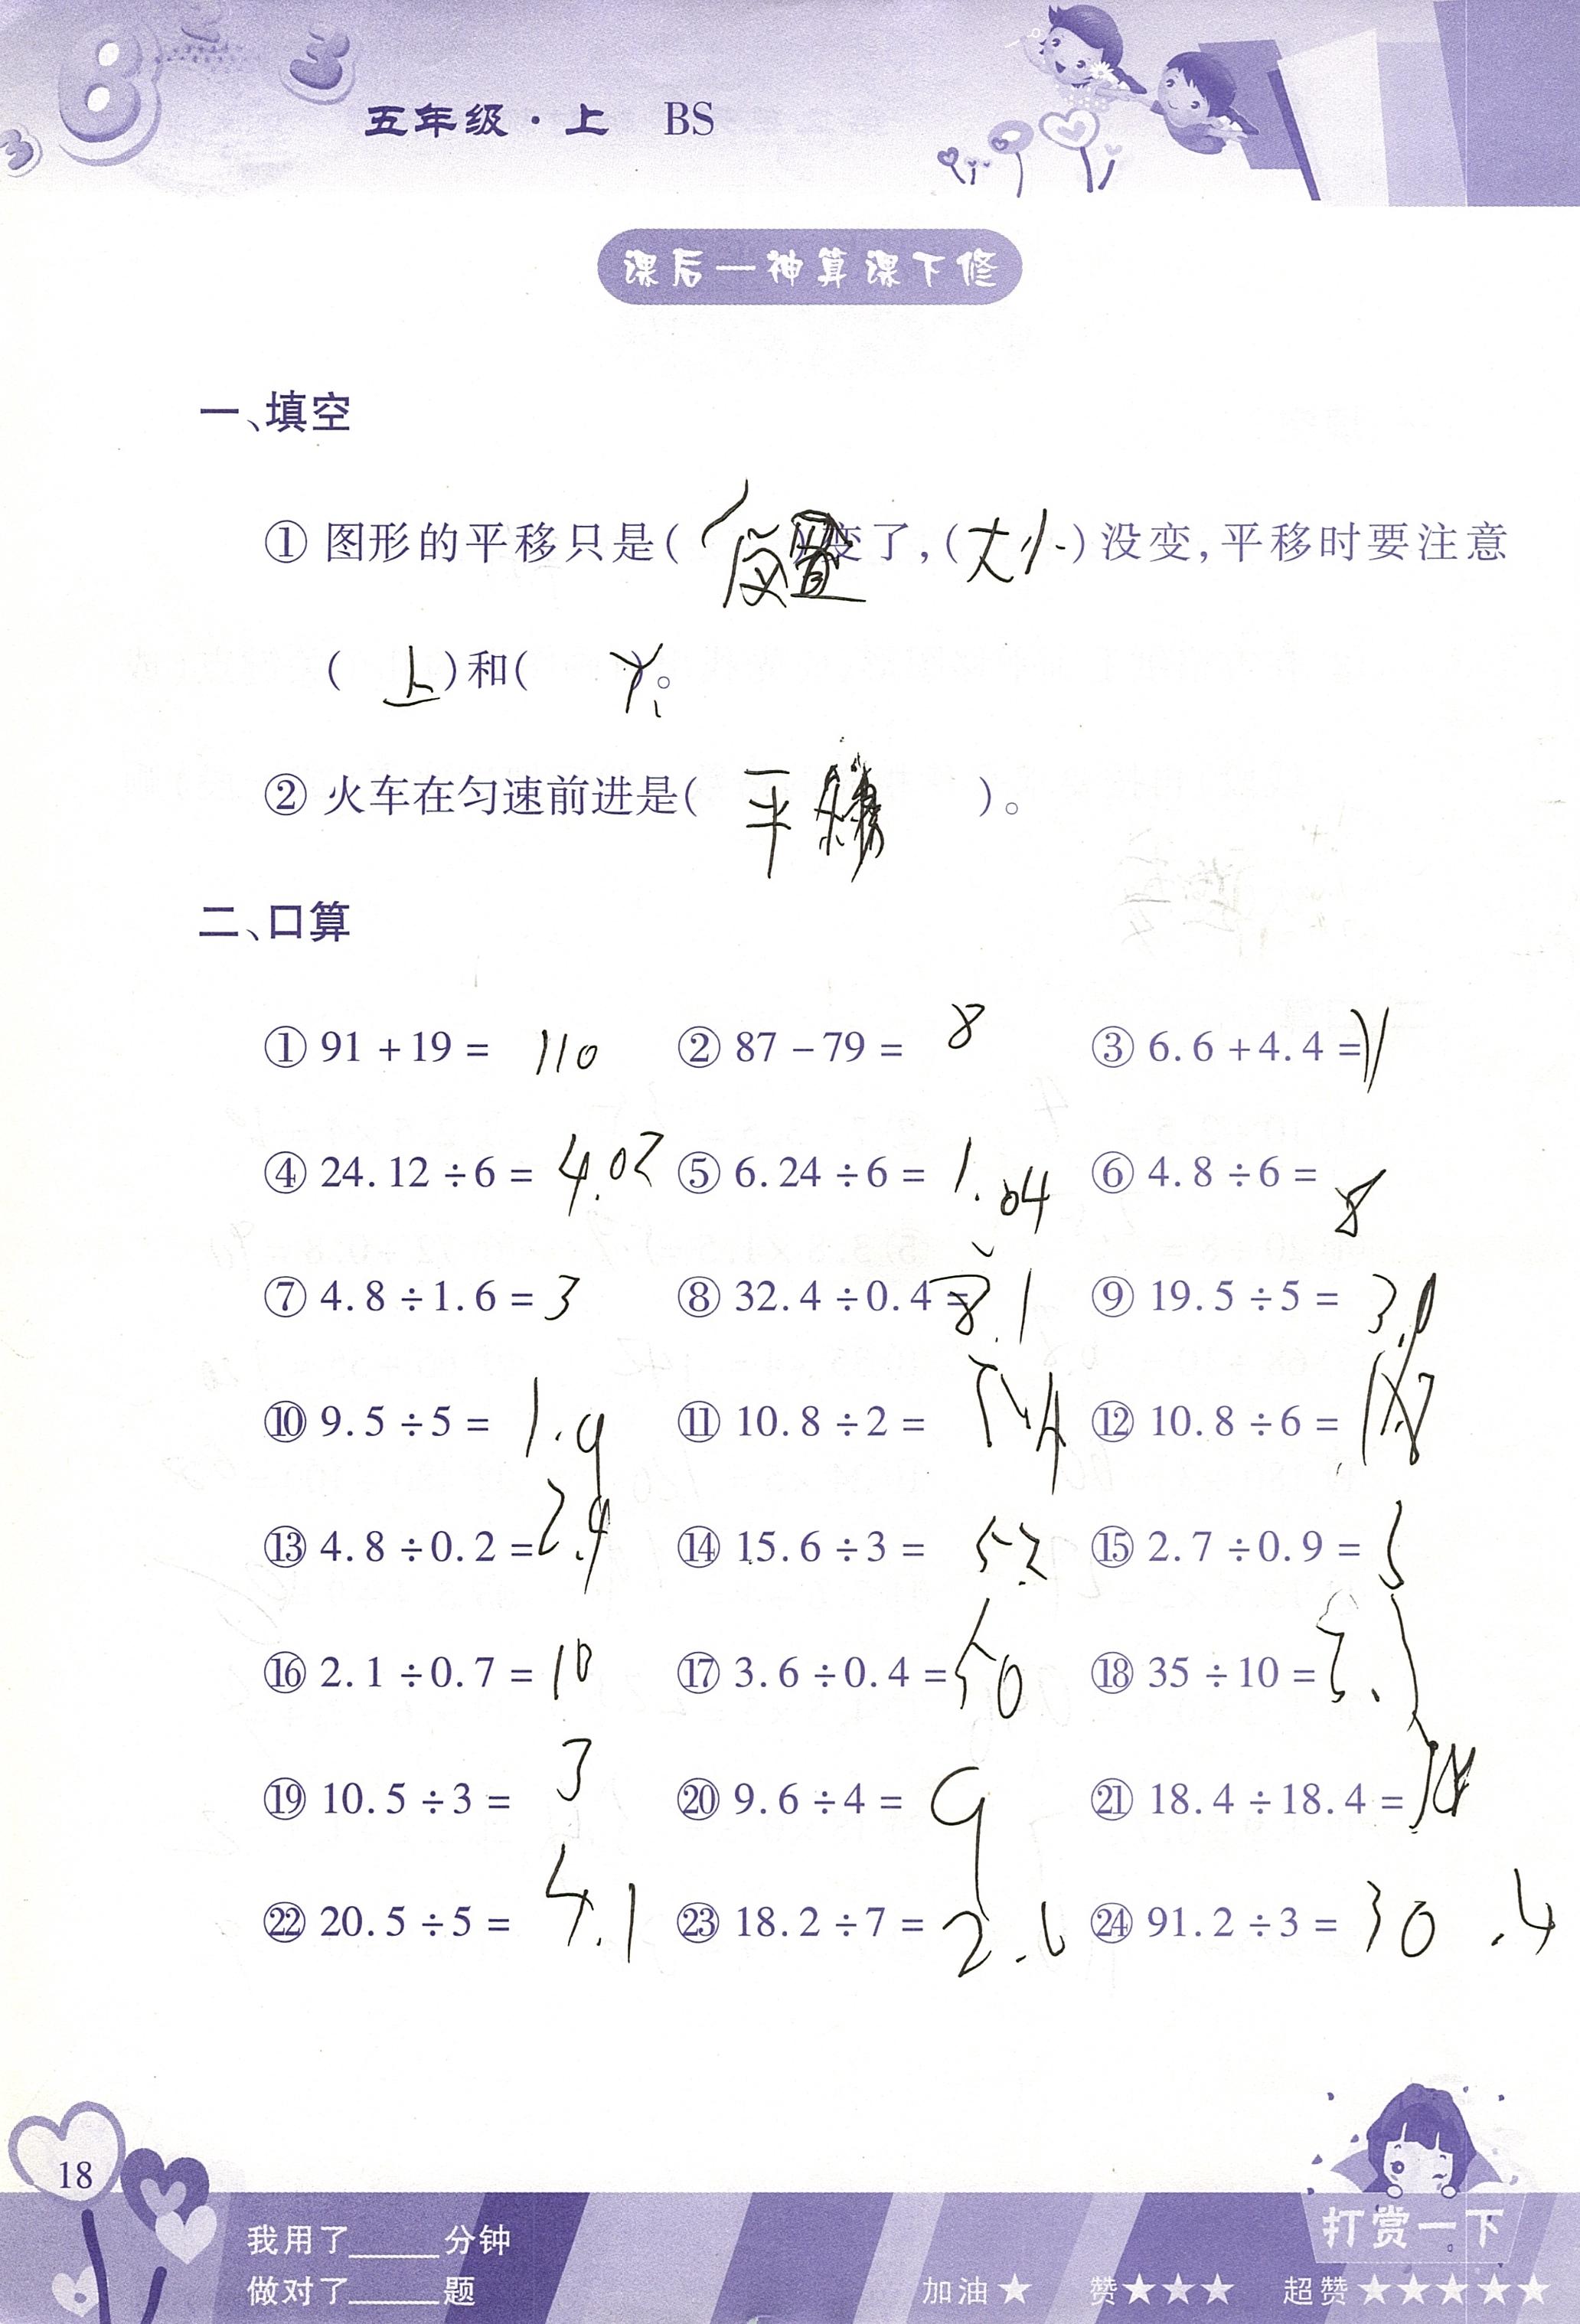 五年级·上 BS
课后—神算课下修
一、填空
① 图形的平移只是( 位置 )变了,( 大小 )没变,平移时要注意
( 上 )和( 下 )。
② 火车在匀速前进是( 平移 )。
二、口算
① 91+19= 110 ② 87-79= 8 ③ 6.6+4.4= 11
④ 24.12÷6= 4.02 ⑤ 6.24÷6= 1.04 ⑥ 4.8÷6= 8
⑦ 4.8÷1.6= 3 ⑧ 32.4÷0.4= 8.1 ⑨ 19.5÷5=
⑩ 9.5÷5= 1.9 ⑪ 10.8÷2= ⑫ 10.8÷6=
⑬ 4.8÷0.2= 2.4 ⑭ 15.6÷3= 5.2 ⑮ 2.7÷0.9=
⑯ 2.1÷0.7= 10 ⑰ 3.6÷0.4= 50 ⑱ 35÷10=
⑲ 10.5÷3= 3 ⑳ 9.6÷4= 9 ㉑ 18.4÷18.4=
㉒ 20.5÷5= 4.1 ㉓ 18.2÷7= 2.6 ㉔ 91.2÷3= 30.4
18
我用了____分钟
做对了____题
打赏一下
加油★ 赞★★★ 超赞★★★★★